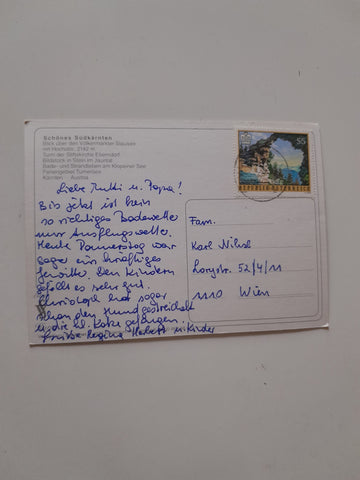 Schönes Südkärnten
Blick über den Völkermarkter Stausee
mit Hochobir, 2142 m
Turm der Stiftskirche Eberndorf
Bildstock in Stein im Jauntal
Bade- und Strandleben am Klopeiner See
Feriengebiet Turnersee
Kärnten Austria
55
REPUBLIK ÖSTERREICH
Liebe Mutti u. Papa!
Bis jetzt ist kein
so richtiges Badewetter
nur Ausflugswetter.
Heute Donnerstag war
sogar ein kräftiges
Gewitter. Den Kindern
gefällt es sehr gut.
Christoph hat sogar
schon den Hund gestreichelt
u. die kl. Katze gefangen.
Grüße Regina Herbert u. Kinder
Fam.
Karl
Lorystr. 52/4/11
1110 Wien